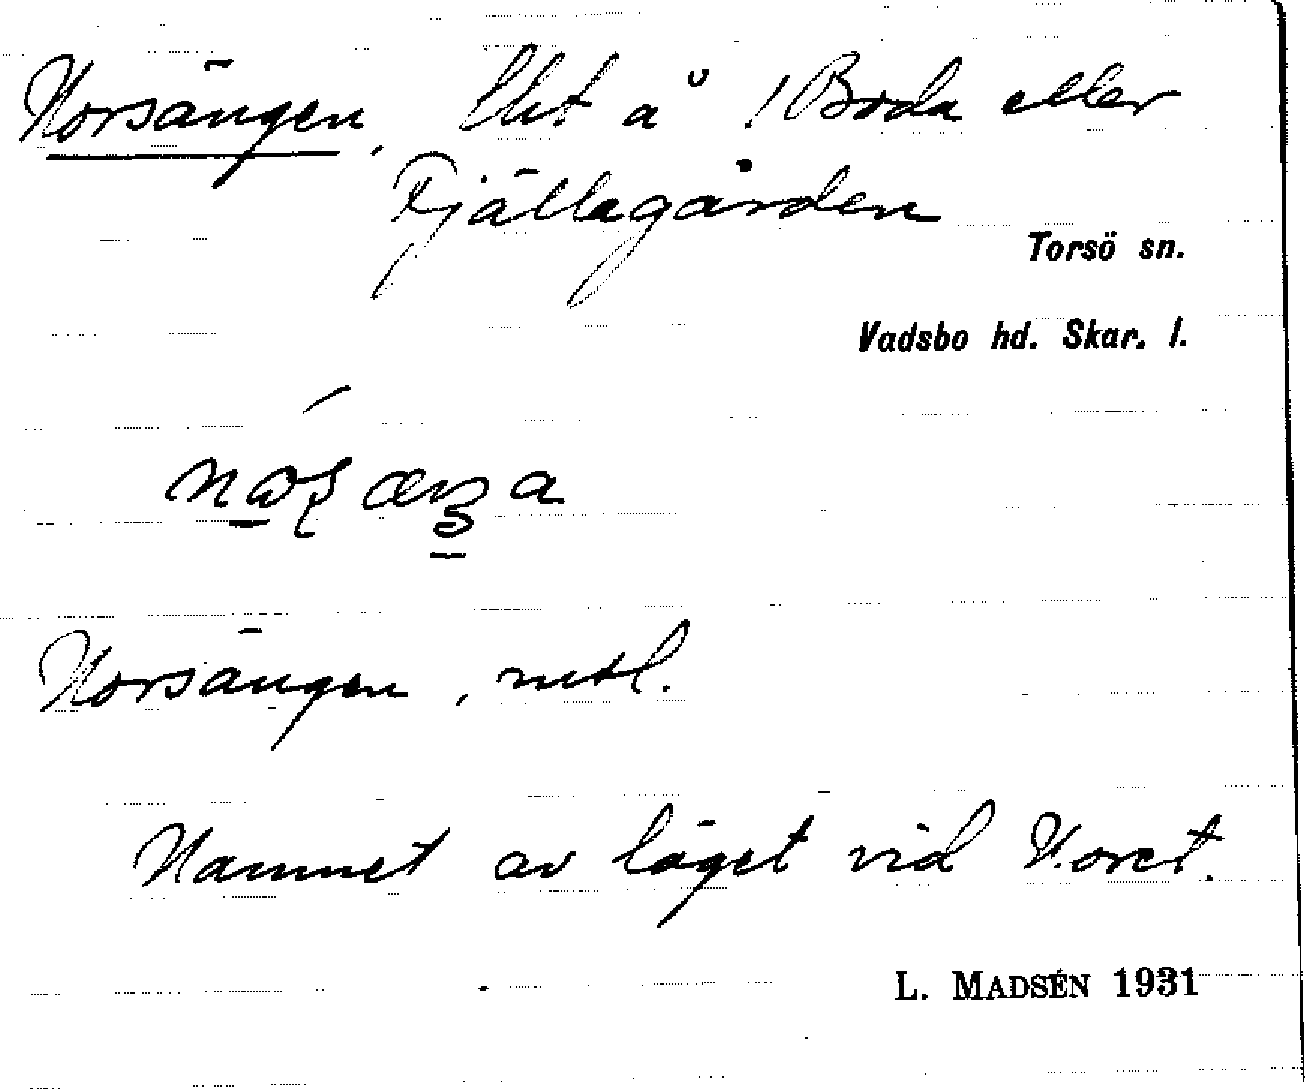 Norsängen, Utj å /Boda eller
Fjällagården
Torsö sn.
Vadsbo hd. Skar. l.
Norsängen,
Namnet av läget vid Noret.
L. MADSÉN 1931